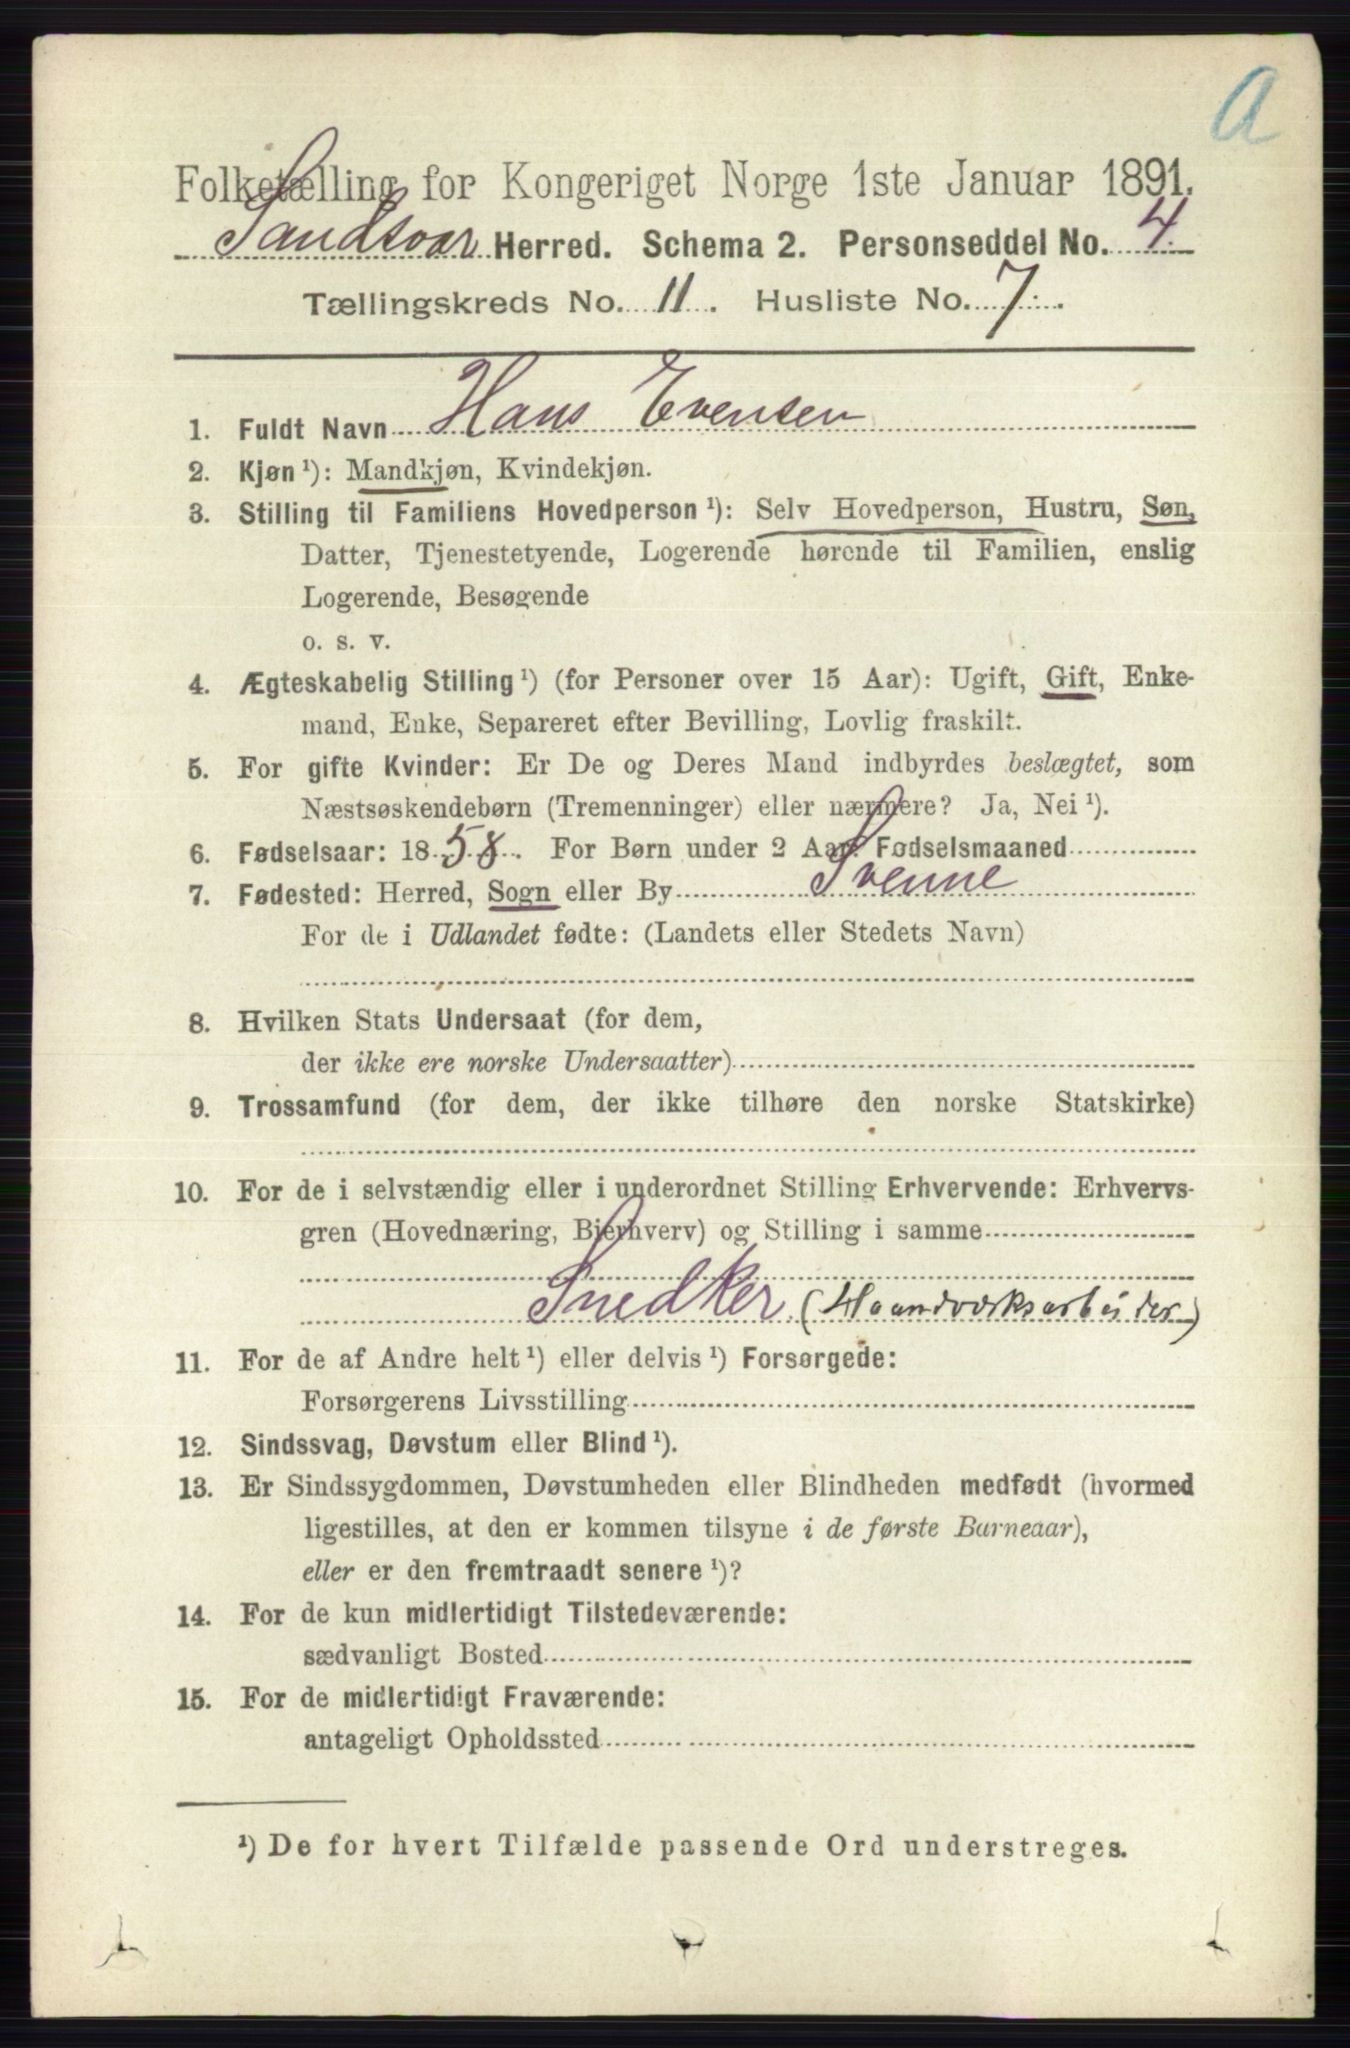 A
Folketælling for Kongeriget Norge 1ste Januar 1891.
Sandsvær Herred. Schema 2. Personseddel No. 4.
Tællingskreds No. 11. Husliste No. 7.
1. Fuldt Navn Hans Evensen
2. Kjøn ¹): Mandkjøn, Kvindekjøn.
3. Stilling til Familiens Hovedperson ¹): Selv Hovedperson, Hustru, Søn,
Datter, Tjenestetyende, Logerende hørende til Familien, enslig
Logerende, Besøgende
o. s. v.
4. Ægteskabelig Stilling ¹) (for Personer over 15 Aar): Ugift, Gift, Enke-
mand, Enke, Separeret efter Bevilling, Lovlig fraskilt.
5. For gifte Kvinder: Er De og Deres Mand indbyrdes beslægtet, som
Næstsøskendebørn (Tremenninger) eller nærmere? Ja, Nei ¹).
6. Fødselsaar: 1858. For Børn under 2 Aar: Fødselsmaaned
7. Fødested: Herred, Sogn eller By Svenne
For de i Udlandet fødte: (Landets eller Stedets Navn)
8. Hvilken Stats Undersaat (for dem,
der ikke ere norske Undersaatter)
9. Trossamfund (for dem, der ikke tilhøre den norske Statskirke)
10. For de i selvstændig eller i underordnet Stilling Erhvervende: Erhvervs-
gren (Hovednæring, Bierhverv) og Stilling i samme
Snedker (Haandværksarbeider)
11. For de af Andre helt ¹) eller delvis ¹) Forsørgede:
Forsørgerens Livsstilling
12. Sindssvag, Døvstum eller Blind ¹).
13. Er Sindssygdommen, Døvstumheden eller Blindheden medfødt (hvormed
ligestilles, at den er kommen tilsyne i de første Barneaar),
eller er den fremtraadt senere ¹)?
14. For de kun midlertidigt Tilstedeværende:
sædvanligt Bosted
15. For de midlertidigt Fraværende:
antageligt Opholdssted
¹) De for hvert Tilfælde passende Ord understreges.